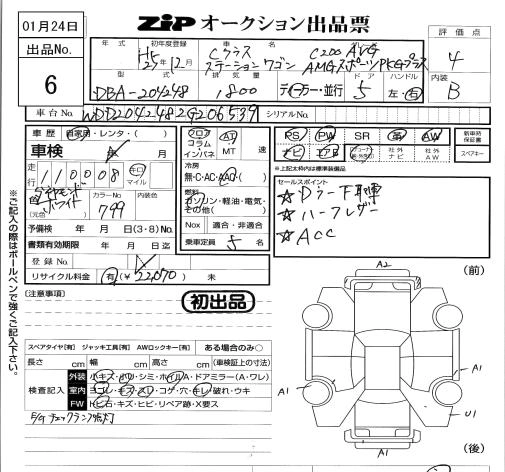 01月24日
ZIP オークション出品票
出品No.
6
年式 初年度登録
H5
25年12月
車名
Cクラス
ステーションワゴン
C200 AVG
AMGスポーツPKGプラス
評価点
4
内装
B
型式
DBA-204248
排気量
1800
ディーラー・並行
ドア
5
ハンドル
左・右
車台No.
WDD2042482G206539
シリアルNo.
車歴 自家用・レンタ・( )
車検 年 月
走行
110008
キロ
マイル
ダイヤモンドホワイト
(元色)
カラーNo.
799
予備検 年 月 日(3・8)No.
書類有効期限 年 月 日迄
登録No.
リサイクル料金 有(¥22,070) 未
フロア
コラム
インパネ
AT
MT
速
冷房
無・C・AC・AAC
燃料
ガソリン・軽油・電気・
その他( )
Nox 適合・非適合
乗車定員 5 名
PS PW SR 革 AW
ナビ エアB
社外ナビ
社外AW
新車時保証書
スペアキー
*上記太枠内は標準装備品
セールスポイント
☆Dラー下取車
☆ハーフレザー
☆ACC
※ご記入の際はボールペンで強くご記入下さい。
[注意事項]
初出品
スペアタイヤ[有] ジャッキ工具[有] AWロックキー[有] ある場合のみ○
長さ cm 幅 cm 高さ cm (車検証上の寸法)
検査記入
外装 小キズ・凹・シミ・ホイルA・ドアミラー(A・ワレ)
室内 ヨゴレ・キズ・スレ・コゲ・穴・キレ・破れ・ウキ
FW トビ石・キズ・ヒビ・リペア跡・X要ス
E/Gチェックランプ点灯
(前)
A2
A1
A1
U1
A1
(後)